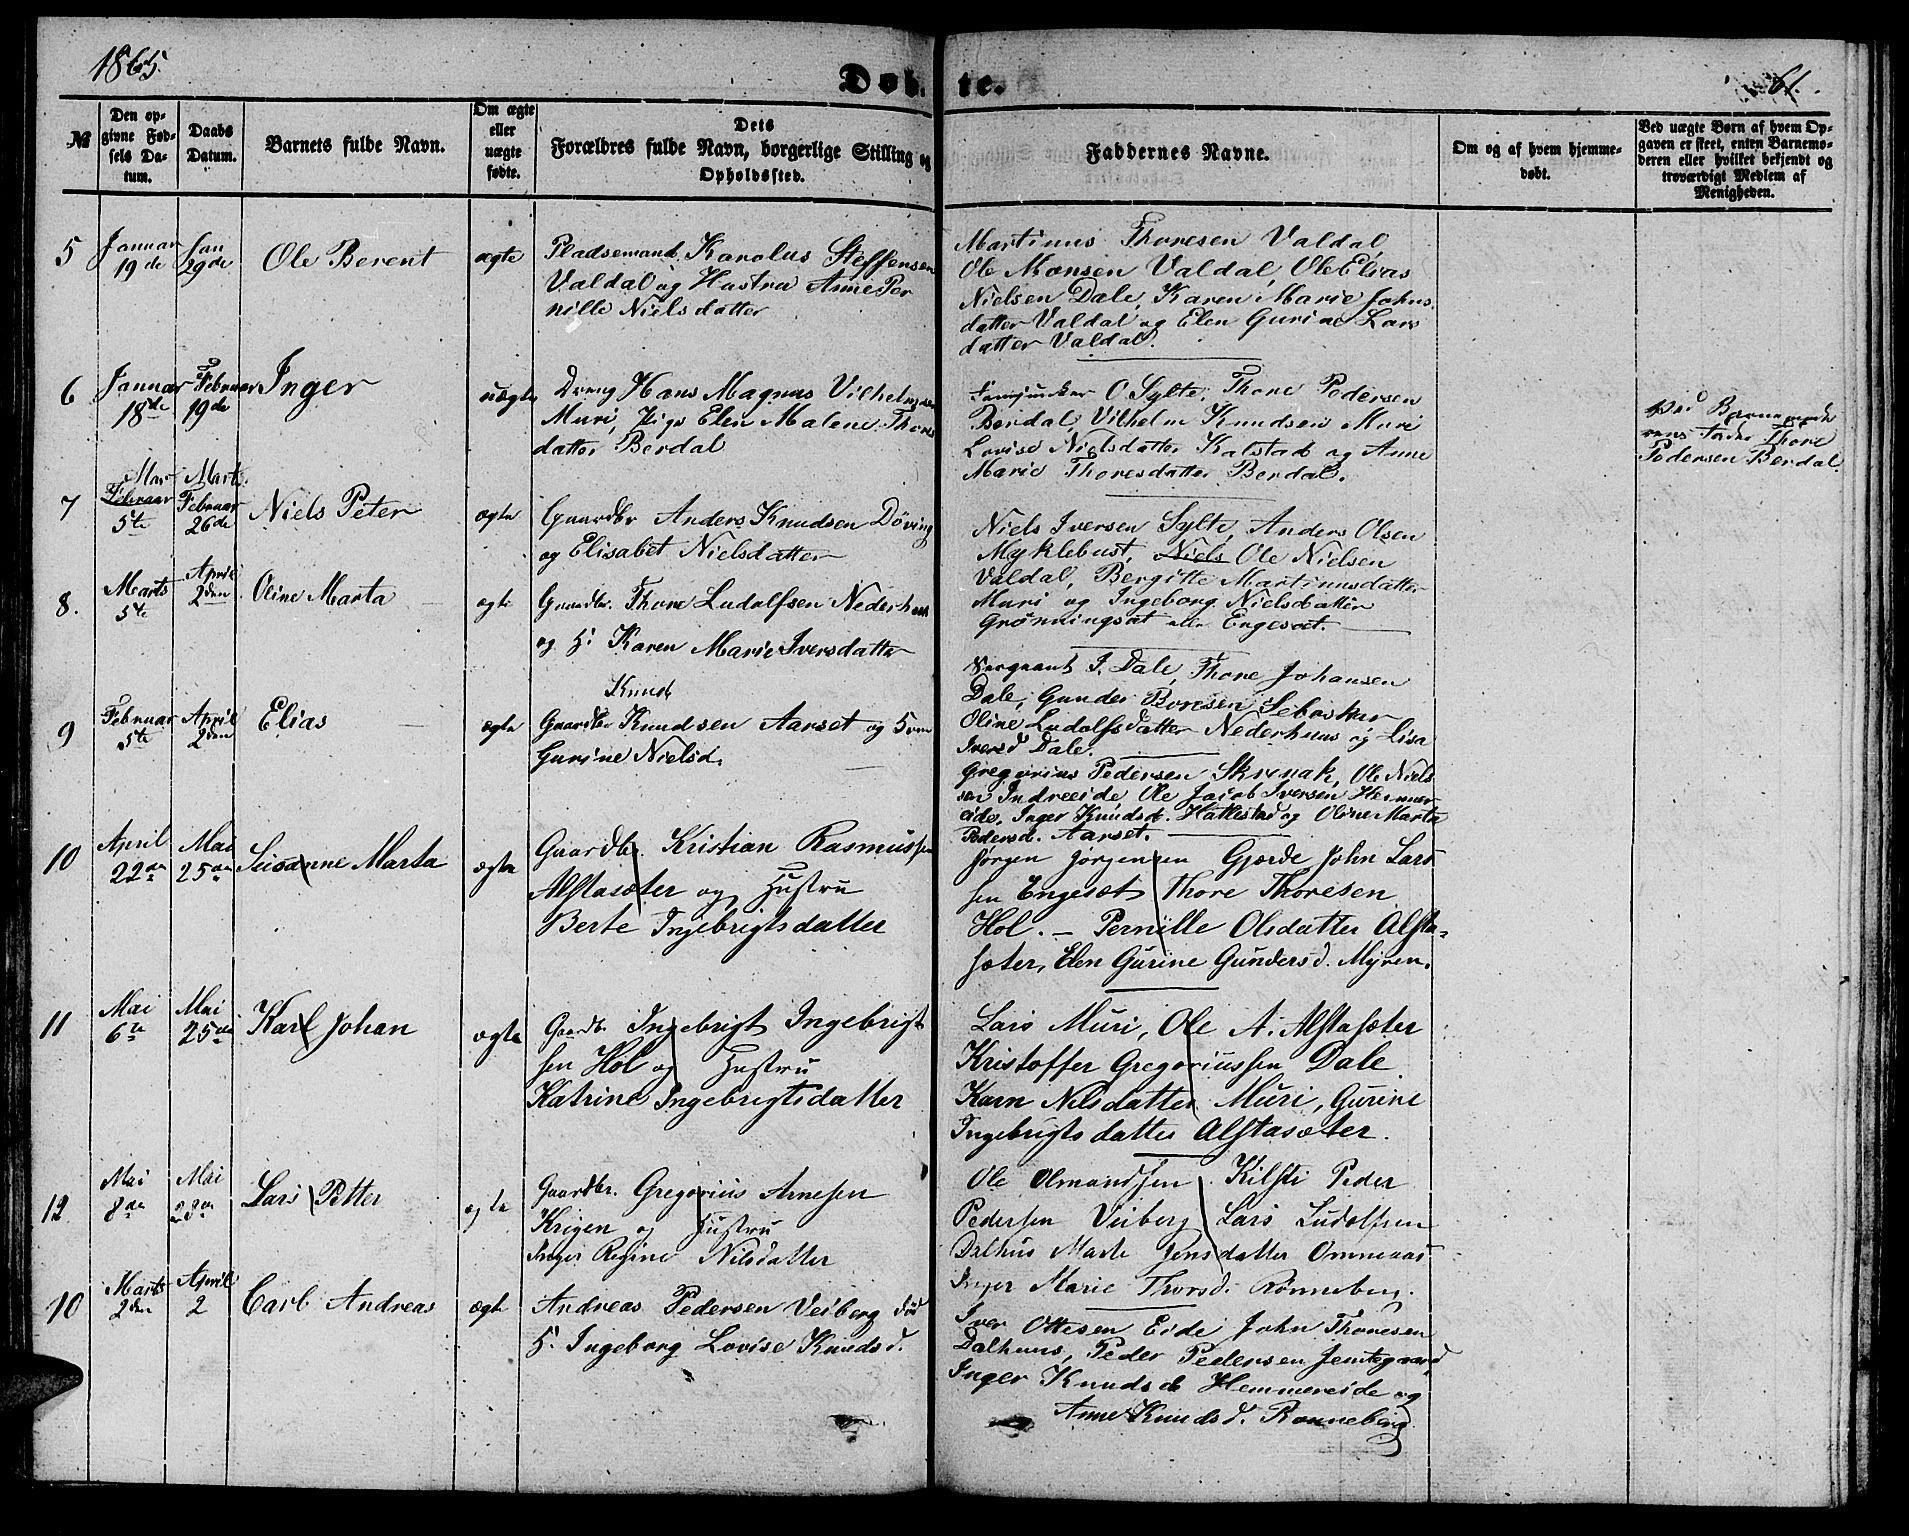 1865.
Døb- te.
61.
№
Den op-
givne Fød-
sels Da-
tum.
Daabs
Datum.
Barnets fulde Navn.
Om ægte
eller
uægte
fødte.
Dets
Forældres fulde Navn, borgerlige Stilling og
Opholdssted.
Faddernes Navne.
Om og af hvem hjemme-
døbt.
Ved uægte Børn af hvem Op-
gaven er skeet, enten Barnemo-
deren eller hvilket bekjendt og
troværdigt Medlem af
Menigheden.
5
Januar
19de
Jan
29de
Ole Berent
ægte
Pladsemand Karolus Steffensen
Valdal og Hustru Anne Per
nille Nielsdatter
Martinus Thoresen Valdal,
Ole Monsen Valdal, Ole Elias
Nielsen Dale, Karen Marie Johns
datter Valdal og Elen Gurine Lars
datter Valdal.
6
Januar
18de
Februar
19de
Inger
uægte
Dreng Hans Magnus Vilhelmsen
Muri, Pige Elen Malene Thores
datter Berdal
O Sylte, Thore Pedersen
Berdal, Vilhelm Knudsen Muri
Lovise Nielsdatter Kalstad og Anne
Marie Thoresdatter Berdal.
Thore
Pedersen Berdal.
7
Mar
Februar
5te
Marts
Februar
26de
Niels Peter
ægte
Gaardbr Anders Knudsen Döving
og Elisabet Nielsdatter
Niels Iversen Sylte, Anders Olsen
Myklebust, Niels Ole Nielsen
Valdal, Bergitte Martinusdatter
Muri og Ingeborg Nielsdatter
Grönningsæt eller Engesæt.
8.
Marts
5te
April
2den
Oline Marta
ægte
Gaardbr. Thore Ludolfsen Nederhuus
og H: Karen Marie Iversdatter
Sergeant I. Dale, Thore Johansen
Dale, Gunder Boresen Seboskar
Oline Ludolfsdatter Nederhuus og Lisa
Iversd Dale.
9
Februar
5te
April
2den
Elias
ægte
Knud
Gaardbr Knudsen Aarset og
Gurine Nielsd.
Gregorius Pedersen Skrenak, Ole Niel
sen Indreeide Ole Jacob Iversen Hemmer
eide, Inger Knudsd. Hattestad og Oline Marta
Pedersd. Aarset.
10
April
22de
Mai
25de
Susanne Marta
ægte
Gaardbr. Kristian Rasmussen
Alstasæter og Hustru
Berte Ingebrigtsdatter
Jørgen Jørgensen Gjærde John Lars
sen Engesæt Thore Thoresen
Hol. — Pernille Olsdatter Alsta-
sæter, Elen Gurine Gundersd. Myren.
11
Mai
6te
Mai
25de
Karl Johan
ægte
Gaardbr. Ingebrigt Ingebrigt
sen Hol og Hustru
Katrine Ingebrigtsdatter
Lars Muri, Ole A. Alstasæter
Kristoffer Gregoriussen Dale
Karn Nilsdatter Muri, Gurine
Ingebrigtsdatter Alstasæter.
12
Mai
8de
Mai
28de
Lars Petter
ægte
Gaardbr. Gregorius Arnesen
Krigen og Hustru
Inger Regine Nilsdatter
Ole Olmandsen Kilsti Peder
Pedersen Veiberg Lars Ludolfsen
Dalhus Marte Jensdatter Ommeaas
Inger Marie Thorsd. Rønneberg.
10
Marts
2den
April
2
Carl Andreas
ægte
Andreas Pedersen Veiberg død
H. Ingeborg Lovise Knudsd.
Iver Ottesen Eide John Thoresen
Dalhuus, Peder Pedersen Jemtegaard
Inger Knudsd Hemmereide og
Anne Knudsd. Ronneberg